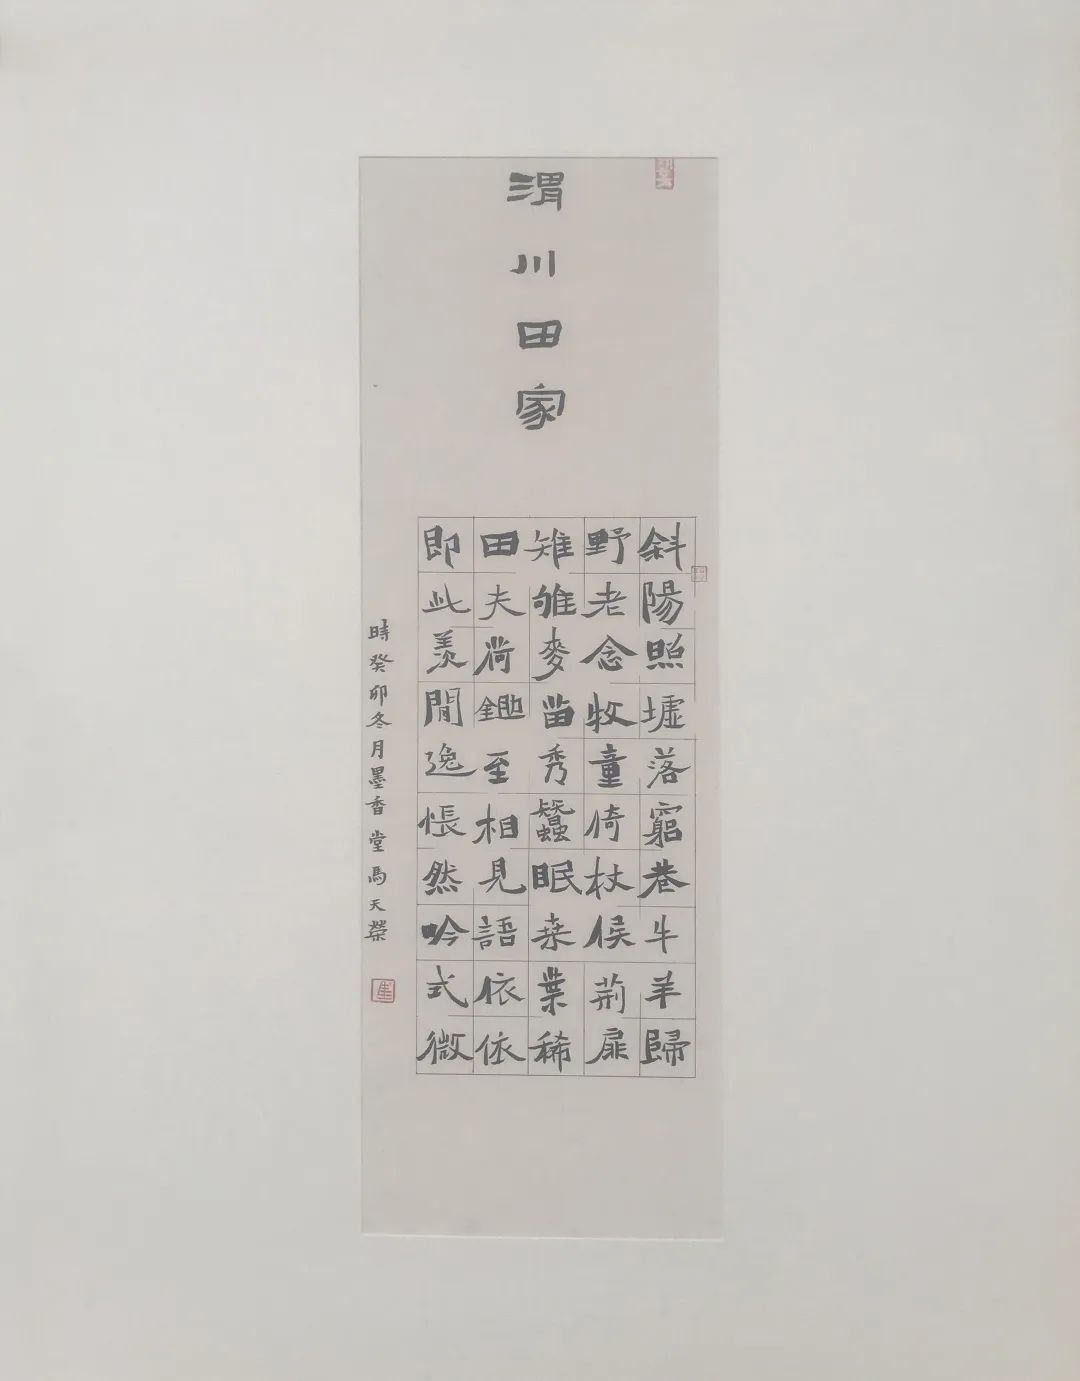 渭川田家
斜陽照墟落窮巷牛羊歸
野老念牧童倚杖候荊扉
雉雊麥苗秀蠶眠桑葉稀
田夫荷鋤至相見語依依
即此羨閒逸悵然吟式微
時癸卯冬月墨香堂馬天榮